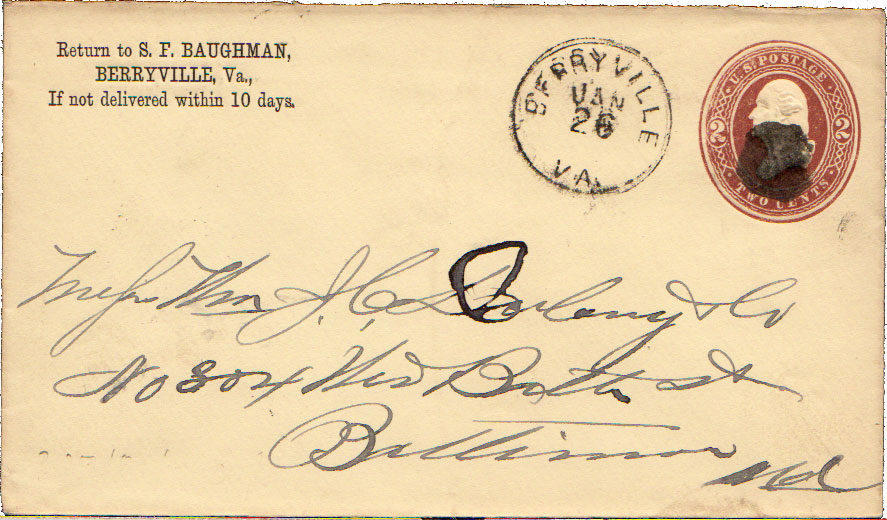 Return to S. F. BAUGHMAN,
BERRYVILLE, Va.,
If not delivered within 10 days.
BERRYVILLE
JAN
26
VA.
U.S. POSTAGE
2 2
TWO CENTS
Messrs Wm J. C. & Co
No 304 St
Baltimore
Md